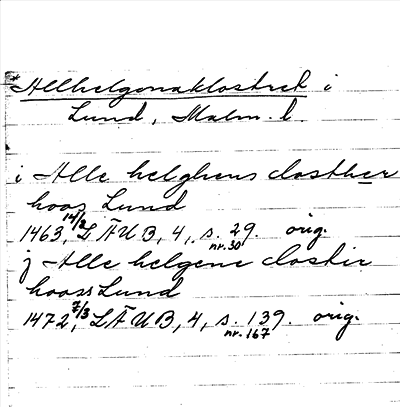 *Allhelgonaklostret i
Lund, Malm. l.
i Alle helghens closther
hoos Lund
1463 14/3, LÄUB, 4, s. 29. orig.
nr. 30
j Alle helgene closter
hooss Lund
1472 7/3, LÄUB, 4, s. 139. orig.
nr. 167